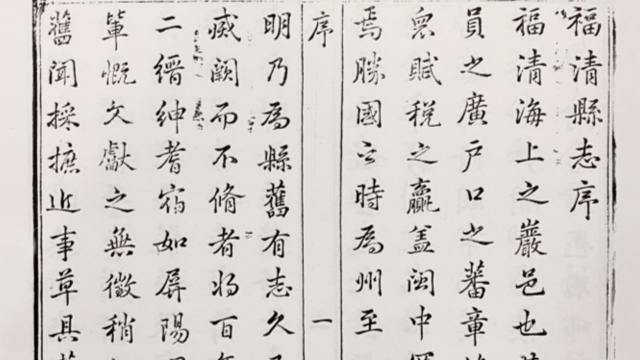 福清縣志序
福清海上之巖邑也
員之廣戶口之蕃章
衆賦稅之贏盖閩中
焉勝國之時為州至
序
一
明乃為縣舊有志久
威闕而不脩者將百
二縉紳耆宿如屏陽
輩慨文獻之無徵稍
舊聞採摭近事草具